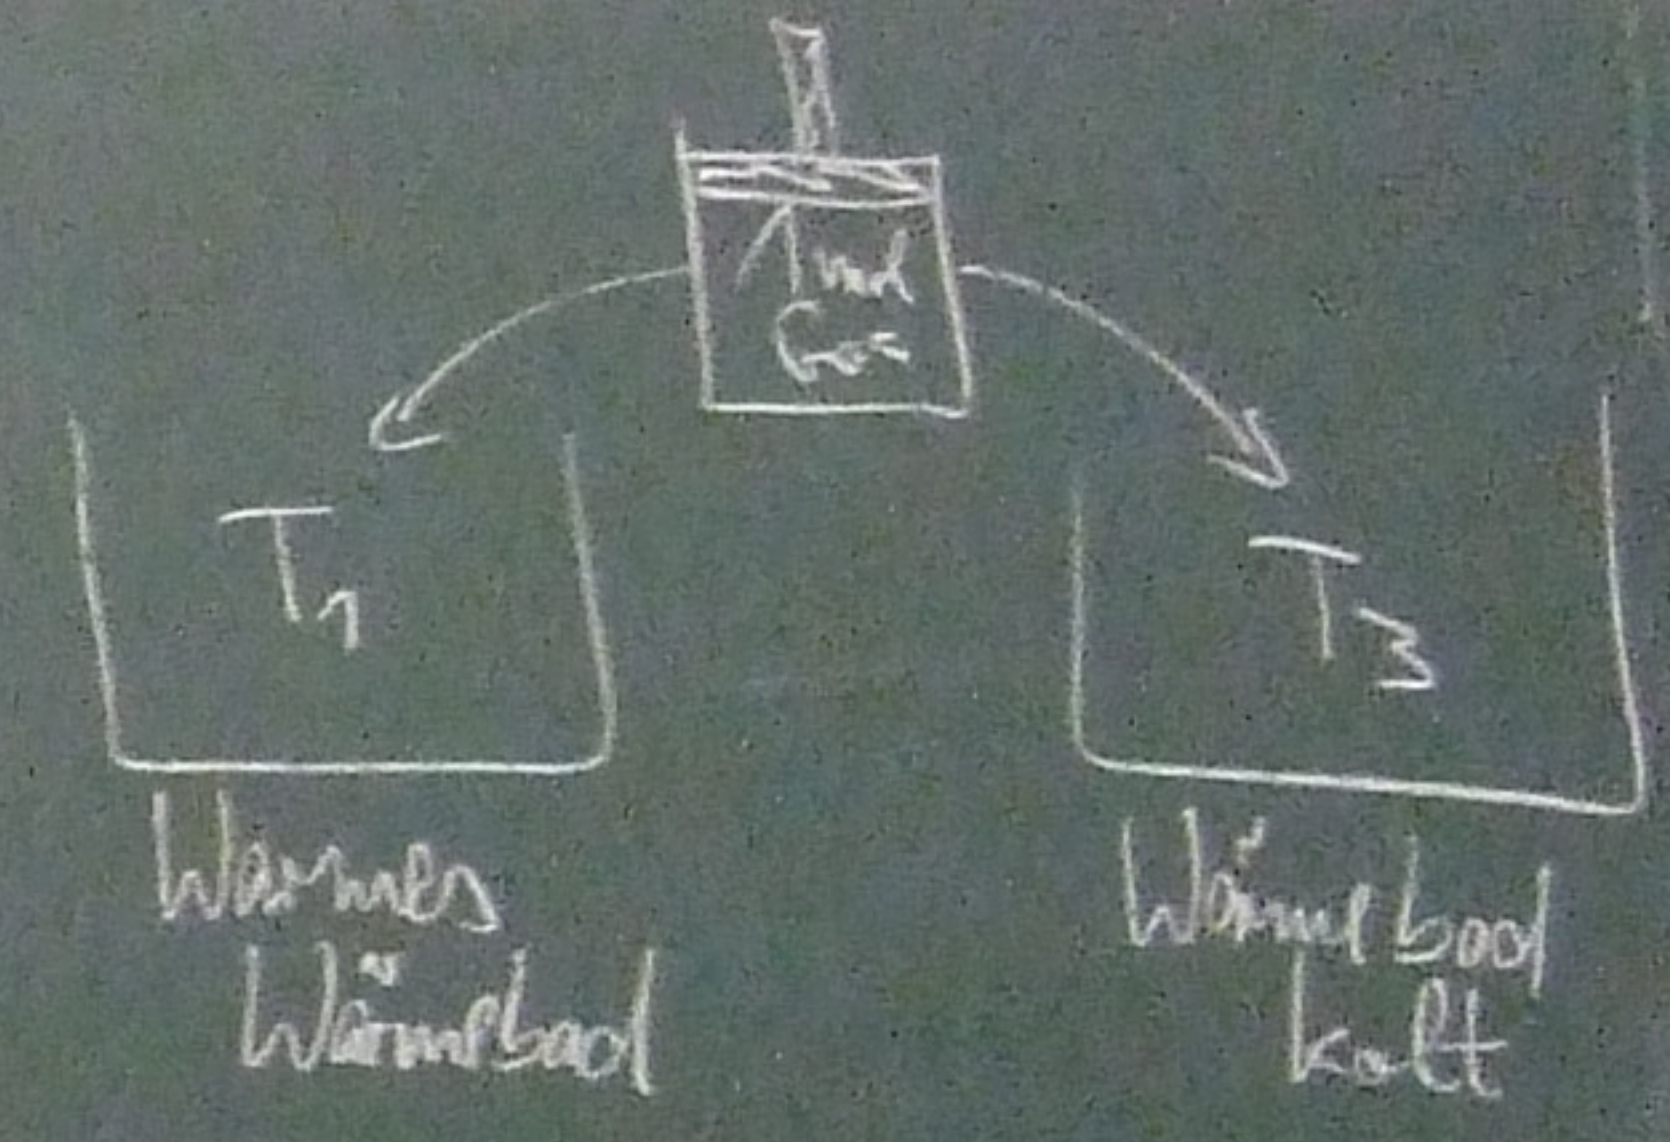 1 mol
Gas
T1
T3
Warmes
Wärmebad
Wärmebad
kalt